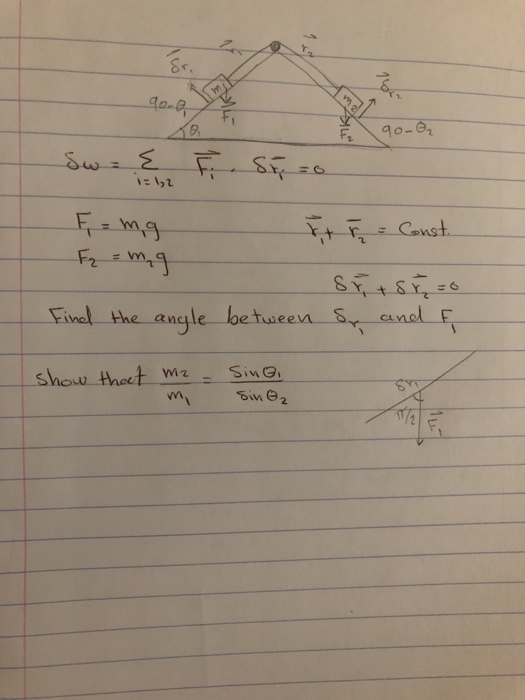 r⃗₁ r⃗₂
δ⃗r₁ m₁ δ⃗r₂
90-θ₁ F⃗₁ m₂
θ₁ F⃗₂ 90-θ₂
δw = Σ i=1,2 F⃗ᵢ . δr⃗ᵢ = 0
F₁ = m₁g r⃗₁ + r⃗₂ = Const.
F₂ = m₂g
δr⃗₁ + δr⃗₂ = 0
Find the angle between δr₁ and F₁
Show that m₂/m₁ = Sinθ₁/Sinθ₂
δr₁
π/2 F⃗₁